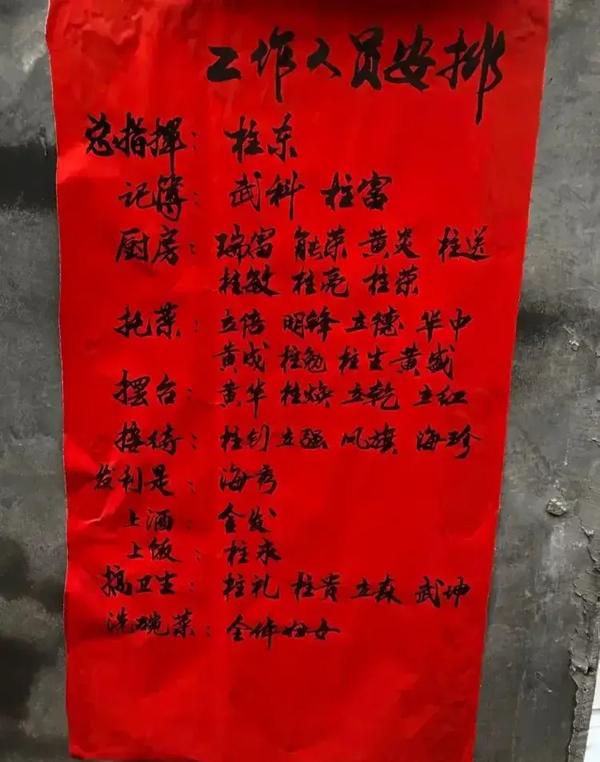 工作人员安排
总指揮：柱东
记簿：武科 柱富
厨房：瑞富 能荣 黄炎 柱送
柱敏 柱亮 柱荣
托菜：立倍 明锋 立德 华中
黄成 柱勉 柱生 黄盛
摆台：黄华 柱焕 立乾 立红
接待：柱钊 立强 凤旗 海珍
发利是：海秀
上酒：金发
上饭：柱永
搞卫生：柱礼 柱贵 立森 武坤
洗碗菜：全体妇女